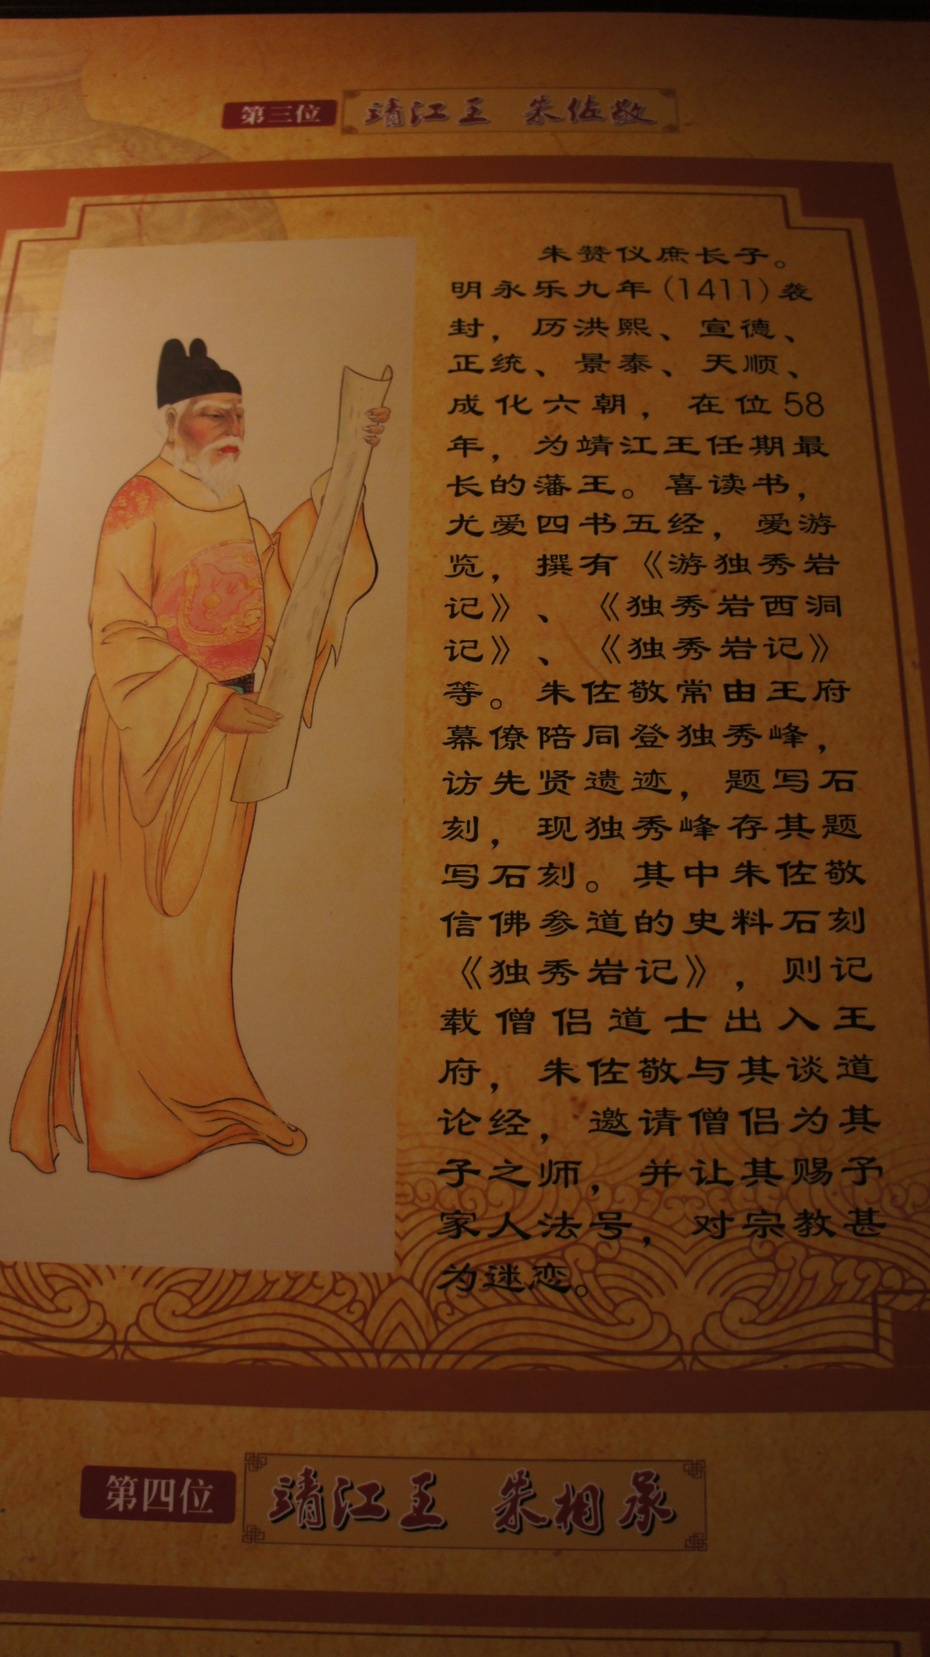 第三位 靖江王 朱佐敬
朱赞仪庶长子。
明永乐九年(1411)袭
封，历洪熙、宣德、
正统、景泰、天顺、
成化六朝，在位58
年，为靖江王任期最
长的藩王。喜读书，
尤爱四书五经，爱游
览，撰有《游独秀岩
记》、《独秀岩西洞
记》、《独秀岩记》
等。朱佐敬常由王府
幕僚陪同登独秀峰，
访先贤遗迹，题写石
刻，现独秀峰存其题
写石刻。其中朱佐敬
信佛参道的史料石刻
《独秀岩记》，则记
载僧侣道士出入王
府，朱佐敬与其谈道
论经，邀请僧侣为其
子之师，并让其赐予
家人法号，对宗教甚
为迷恋。
第四位 靖江王 朱相承